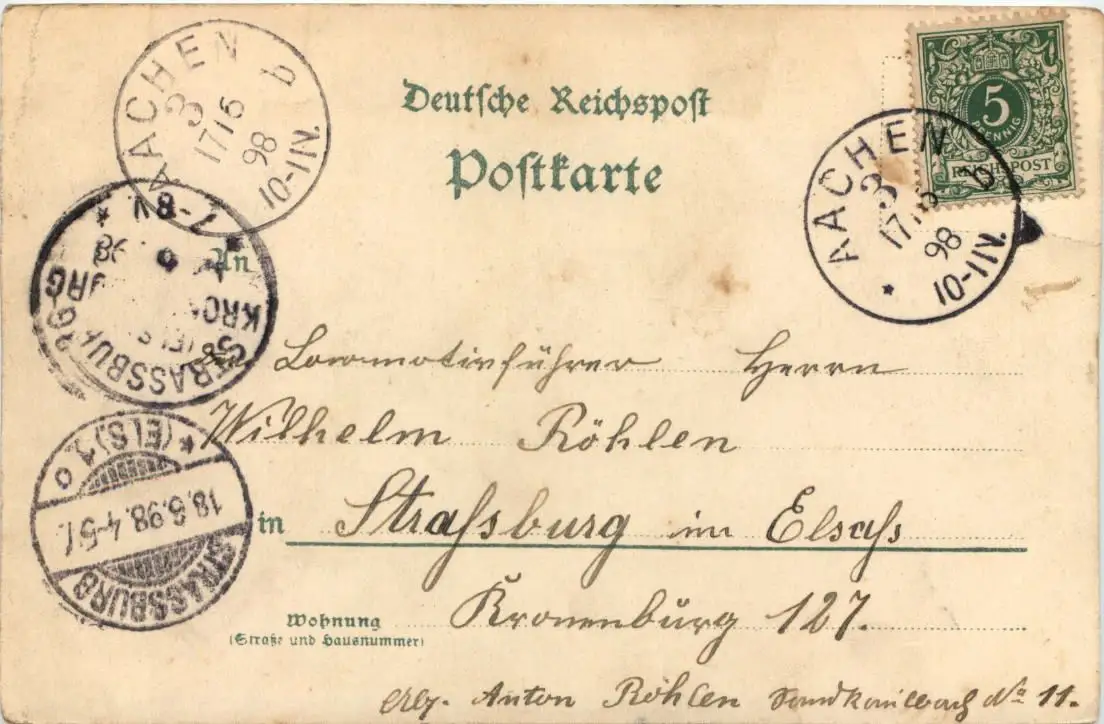 AACHEN
3 b
17 6
98
10-11N.
Deutsche Reichspost
Postkarte
5
PFENNIG
REICHSPOST
AACHEN
3 b
17 6
98
10-11N.
7-8V
98
KRONENBURG
STRASSBURG (ELS
An
Locomotivführer Herrn
Wilhelm Röhlen
in Straſsburg im Elsaſs
Kronenburg 127.
Wohnung
(Straße und Hausnummer)
STRASSBURG
18.6.98.4-5V.
*(ELS)1 o
Anton Röhlen Sandkaulbach No 11.